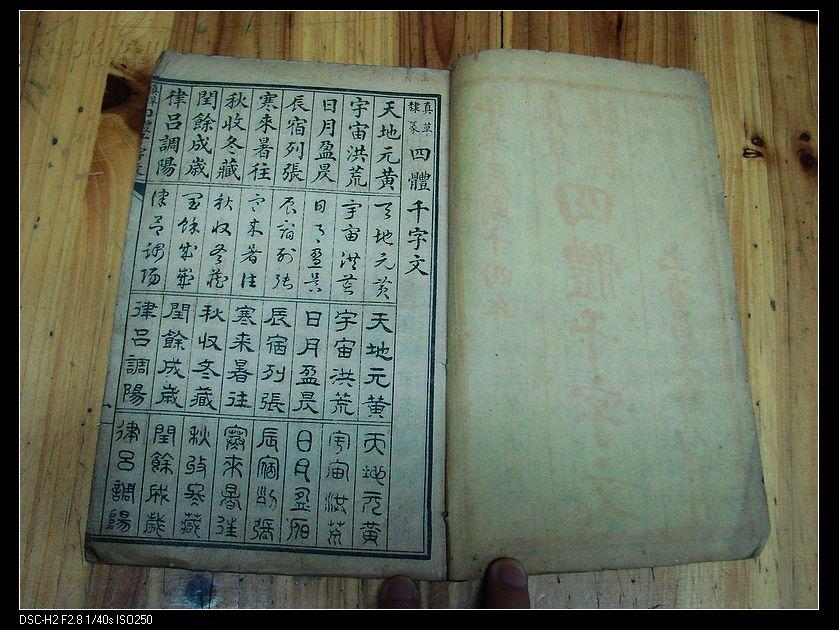 四體千字文
國十四年
真草隸篆四體千字文
天地元黃
宇宙洪荒
日月盈昃
辰宿列張
寒來暑往
秋收冬藏
閏餘成歲
律呂調陽
天地元黃
宇宙洪荒
日月盈昃
辰宿列張
寒來暑往
秋收冬藏
閏餘成歲
律呂調陽
天地元黃
宇宙洪荒
日月盈昃
辰宿列張
寒來暑往
秋收冬藏
閏餘成歲
律呂調陽
天地元黃
宇宙洪荒
日月盈昃
辰宿列張
寒來暑往
秋收冬藏
閏餘成歲
律呂調陽
DSC-H2 F2.8 1/40s ISO250